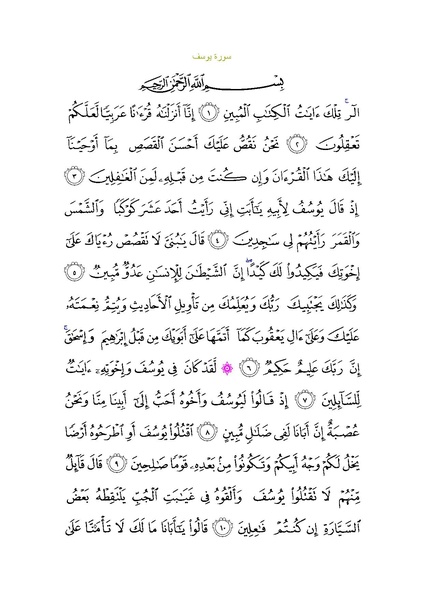 سورة يوسف
بِسْمِ ٱللَّهِ ٱلرَّحْمَٰنِ ٱلرَّحِيمِ
الٓر ۚ تِلْكَ ءَايَٰتُ ٱلْكِتَٰبِ ٱلْمُبِينِ ١ إِنَّآ أَنزَلْنَٰهُ قُرْءَٰنًا عَرَبِيًّا لَّعَلَّكُمْ
تَعْقِلُونَ ٢ نَحْنُ نَقُصُّ عَلَيْكَ أَحْسَنَ ٱلْقَصَصِ بِمَآ أَوْحَيْنَآ
إِلَيْكَ هَٰذَا ٱلْقُرْءَانَ وَإِن كُنتَ مِن قَبْلِهِۦ لَمِنَ ٱلْغَٰفِلِينَ ٣
إِذْ قَالَ يُوسُفُ لِأَبِيهِ يَٰٓأَبَتِ إِنِّى رَأَيْتُ أَحَدَ عَشَرَ كَوْكَبًا وَٱلشَّمْسَ
وَٱلْقَمَرَ رَأَيْتُهُمْ لِى سَٰجِدِينَ ٤ قَالَ يَٰبُنَىَّ لَا تَقْصُصْ رُءْيَاكَ عَلَىٰٓ
إِخْوَتِكَ فَيَكِيدُوا۟ لَكَ كَيْدًا ۖ إِنَّ ٱلشَّيْطَٰنَ لِلْإِنسَٰنِ عَدُوٌّ مُّبِينٌ ٥
وَكَذَٰلِكَ يَجْتَبِيكَ رَبُّكَ وَيُعَلِّمُكَ مِن تَأْوِيلِ ٱلْأَحَادِيثِ وَيُتِمُّ نِعْمَتَهُۥ
عَلَيْكَ وَعَلَىٰٓ ءَالِ يَعْقُوبَ كَمَآ أَتَمَّهَا عَلَىٰٓ أَبَوَيْكَ مِن قَبْلُ إِبْرَٰهِيمَ وَإِسْحَٰقَ ۚ
إِنَّ رَبَّكَ عَلِيمٌ حَكِيمٌ ٦ ۞ لَّقَدْ كَانَ فِى يُوسُفَ وَإِخْوَتِهِۦٓ ءَايَٰتٌ
لِّلسَّآئِلِينَ ٧ إِذْ قَالُوا۟ لَيُوسُفُ وَأَخُوهُ أَحَبُّ إِلَىٰٓ أَبِينَا مِنَّا وَنَحْنُ
عُصْبَةٌ إِنَّ أَبَانَا لَفِى ضَلَٰلٍ مُّبِينٍ ٨ ٱقْتُلُوا۟ يُوسُفَ أَوِ ٱطْرَحُوهُ أَرْضًا
يَخْلُ لَكُمْ وَجْهُ أَبِيكُمْ وَتَكُونُوا۟ مِنۢ بَعْدِهِۦ قَوْمًا صَٰلِحِينَ ٩ قَالَ قَآئِلٌ
مِّنْهُمْ لَا تَقْتُلُوا۟ يُوسُفَ وَأَلْقُوهُ فِى غَيَٰبَتِ ٱلْجُبِّ يَلْتَقِطْهُ بَعْضُ
ٱلسَّيَّارَةِ إِن كُنتُمْ فَٰعِلِينَ ١٠ قَالُوا۟ يَٰٓأَبَانَا مَا لَكَ لَا تَأْمَ۫نَّا عَلَىٰ